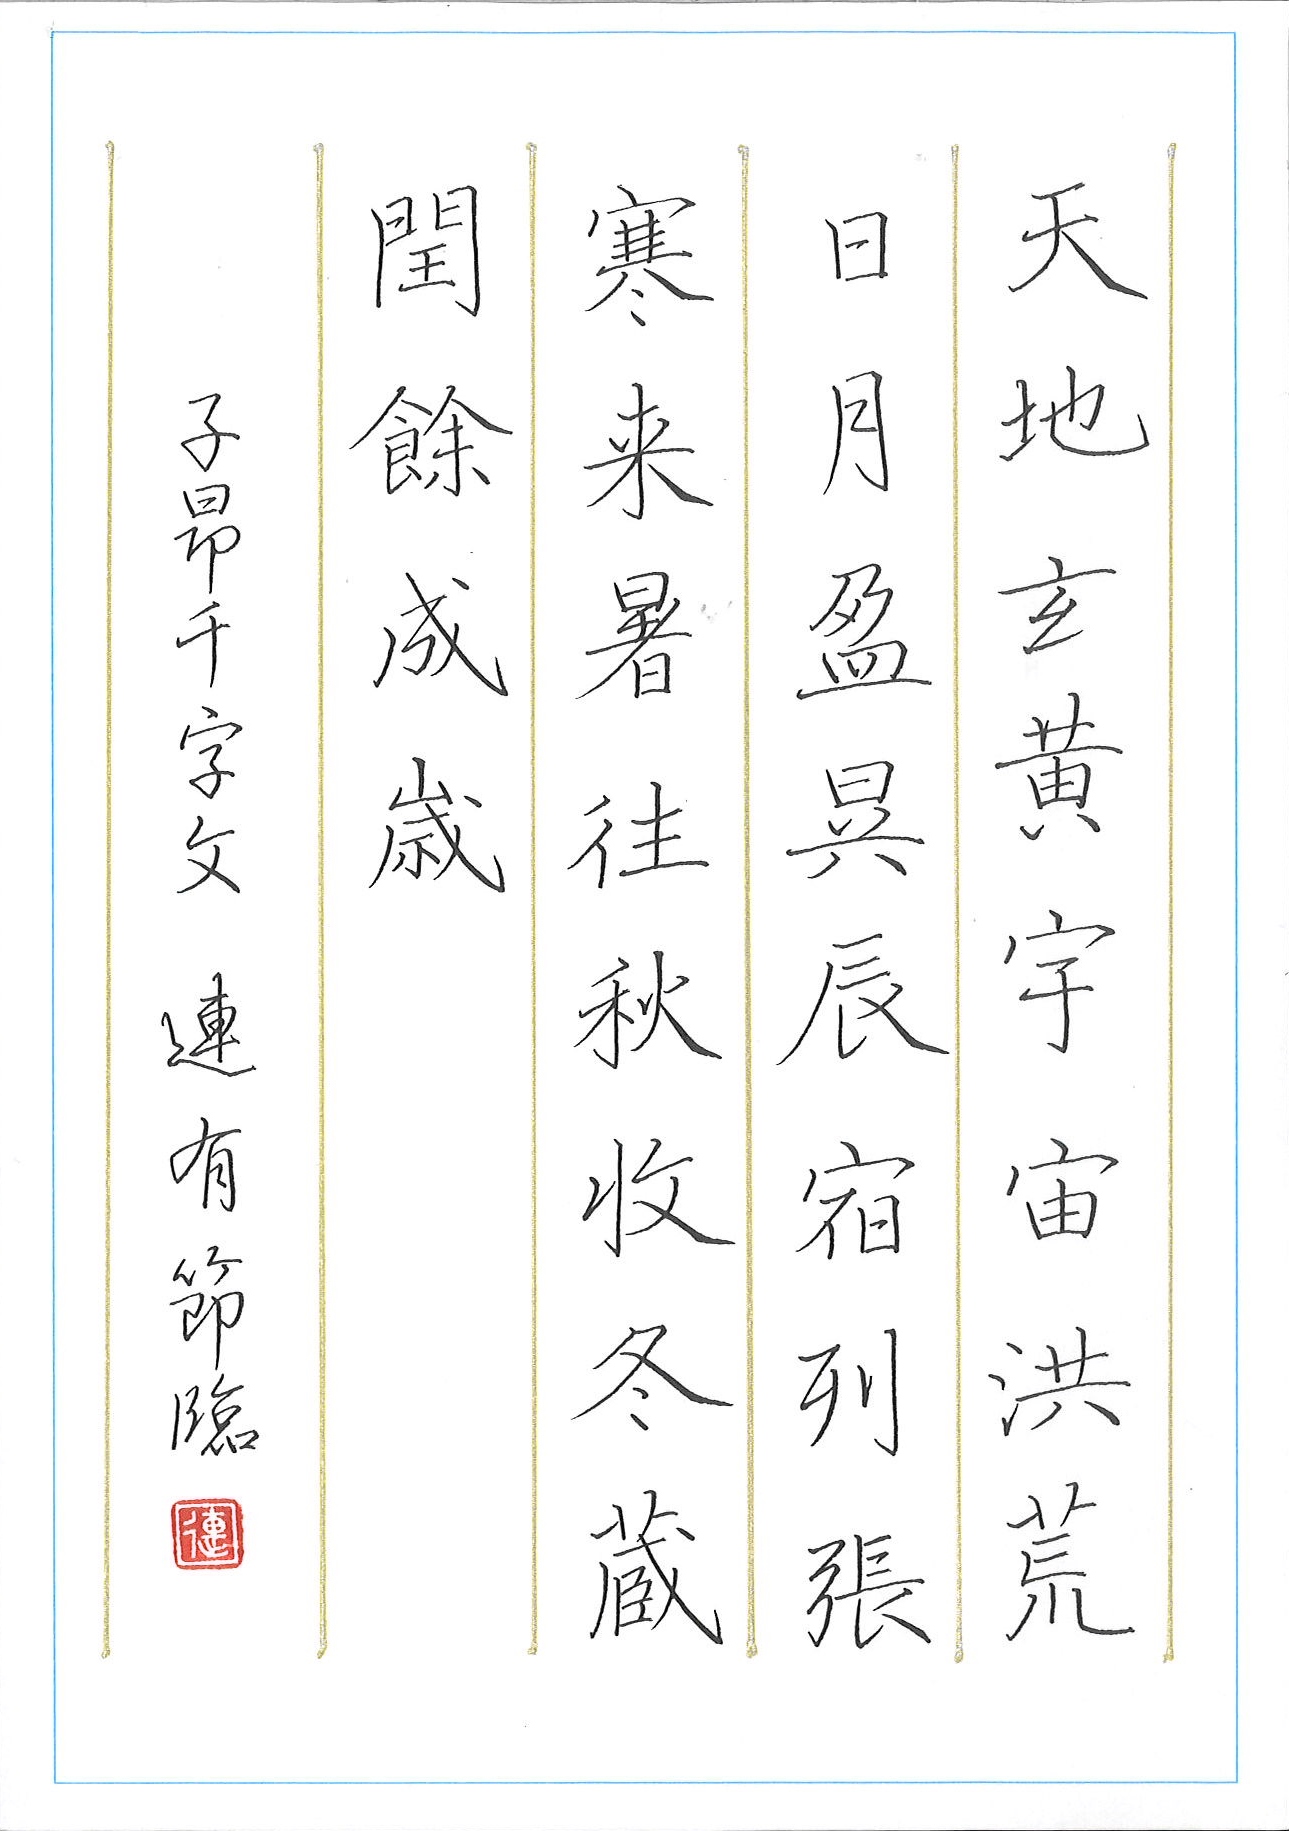 天地玄黄宇宙洪荒
日月盈昃辰宿列張
寒来暑往秋收冬蔵
閏餘成歳
子昂千字文 連有節臨
連